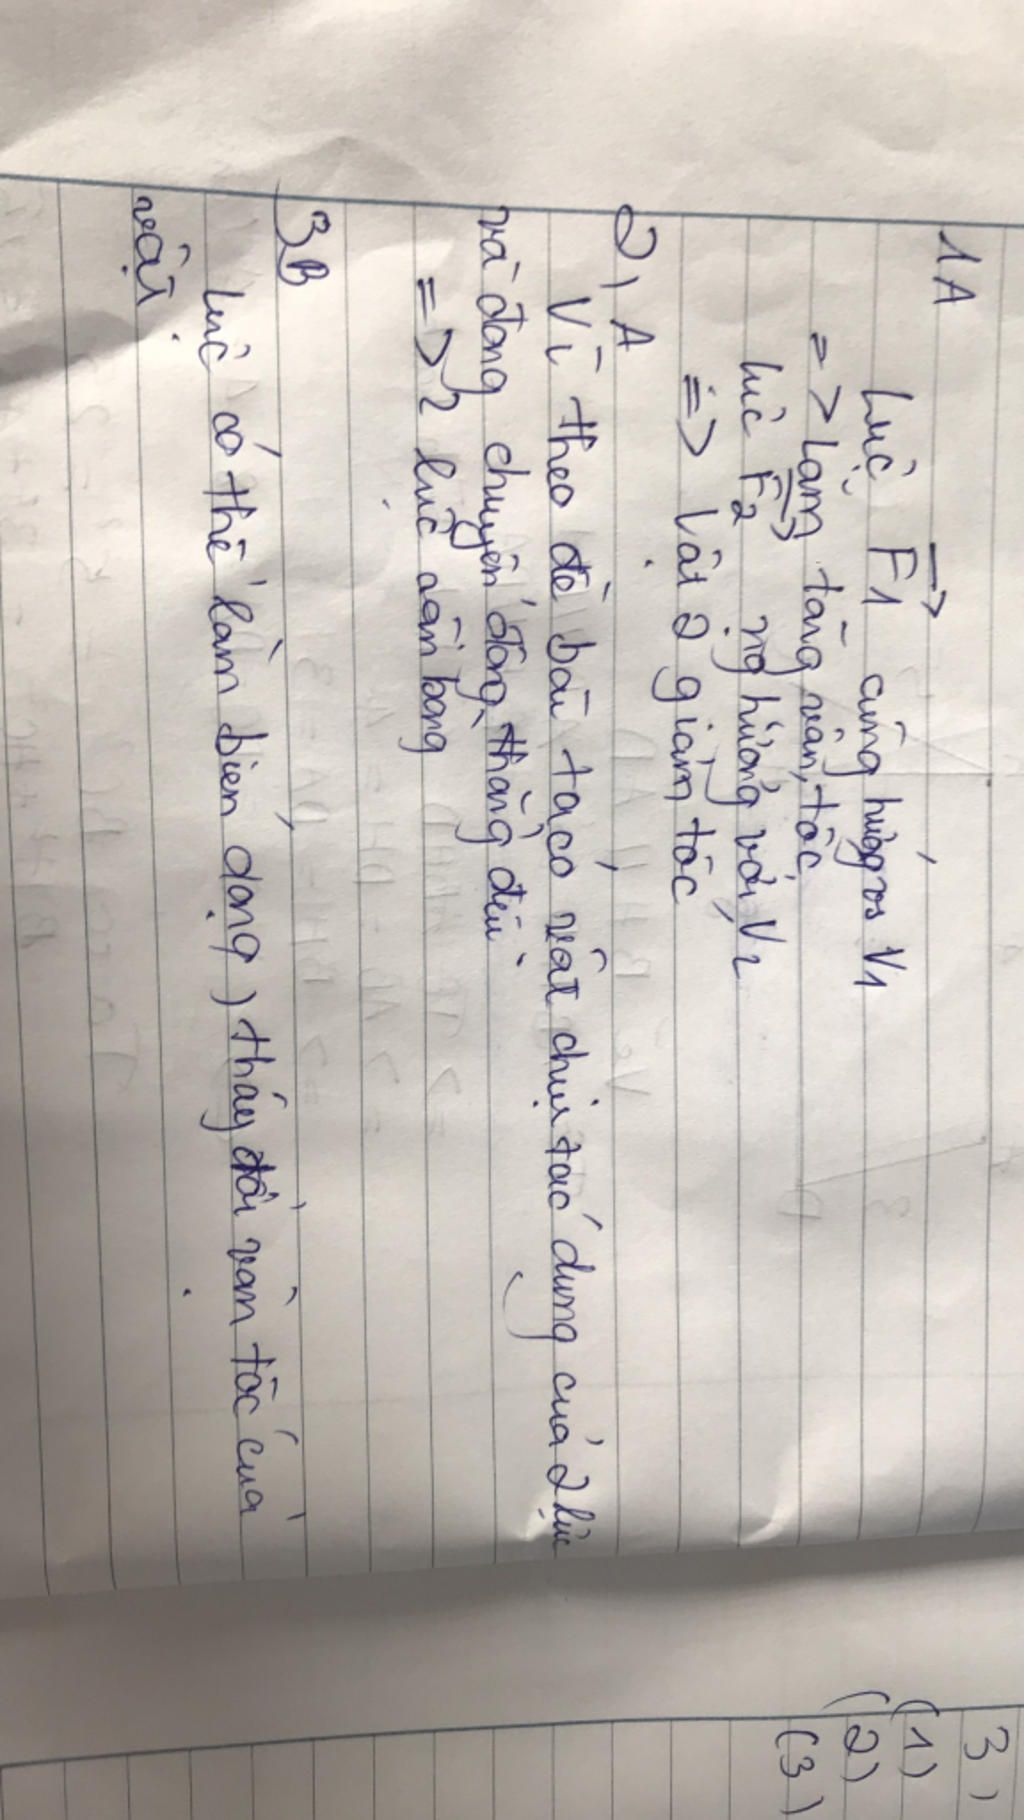 1A
Lực F1 cùng hướng vs V1
=> Làm tăng vận tốc
lực F2 ng hướng với V2
=> Vật 2 giảm tốc
2, A
Vì theo đề bài ta có vật chịu tác dụng của 2 lực
và đang chuyển động thẳng đều
=> 2 lực cân bằng
3B
Lực có thể làm biến dạng, thay đổi vận tốc của
vật.
3)
(1)
(2)
(3)